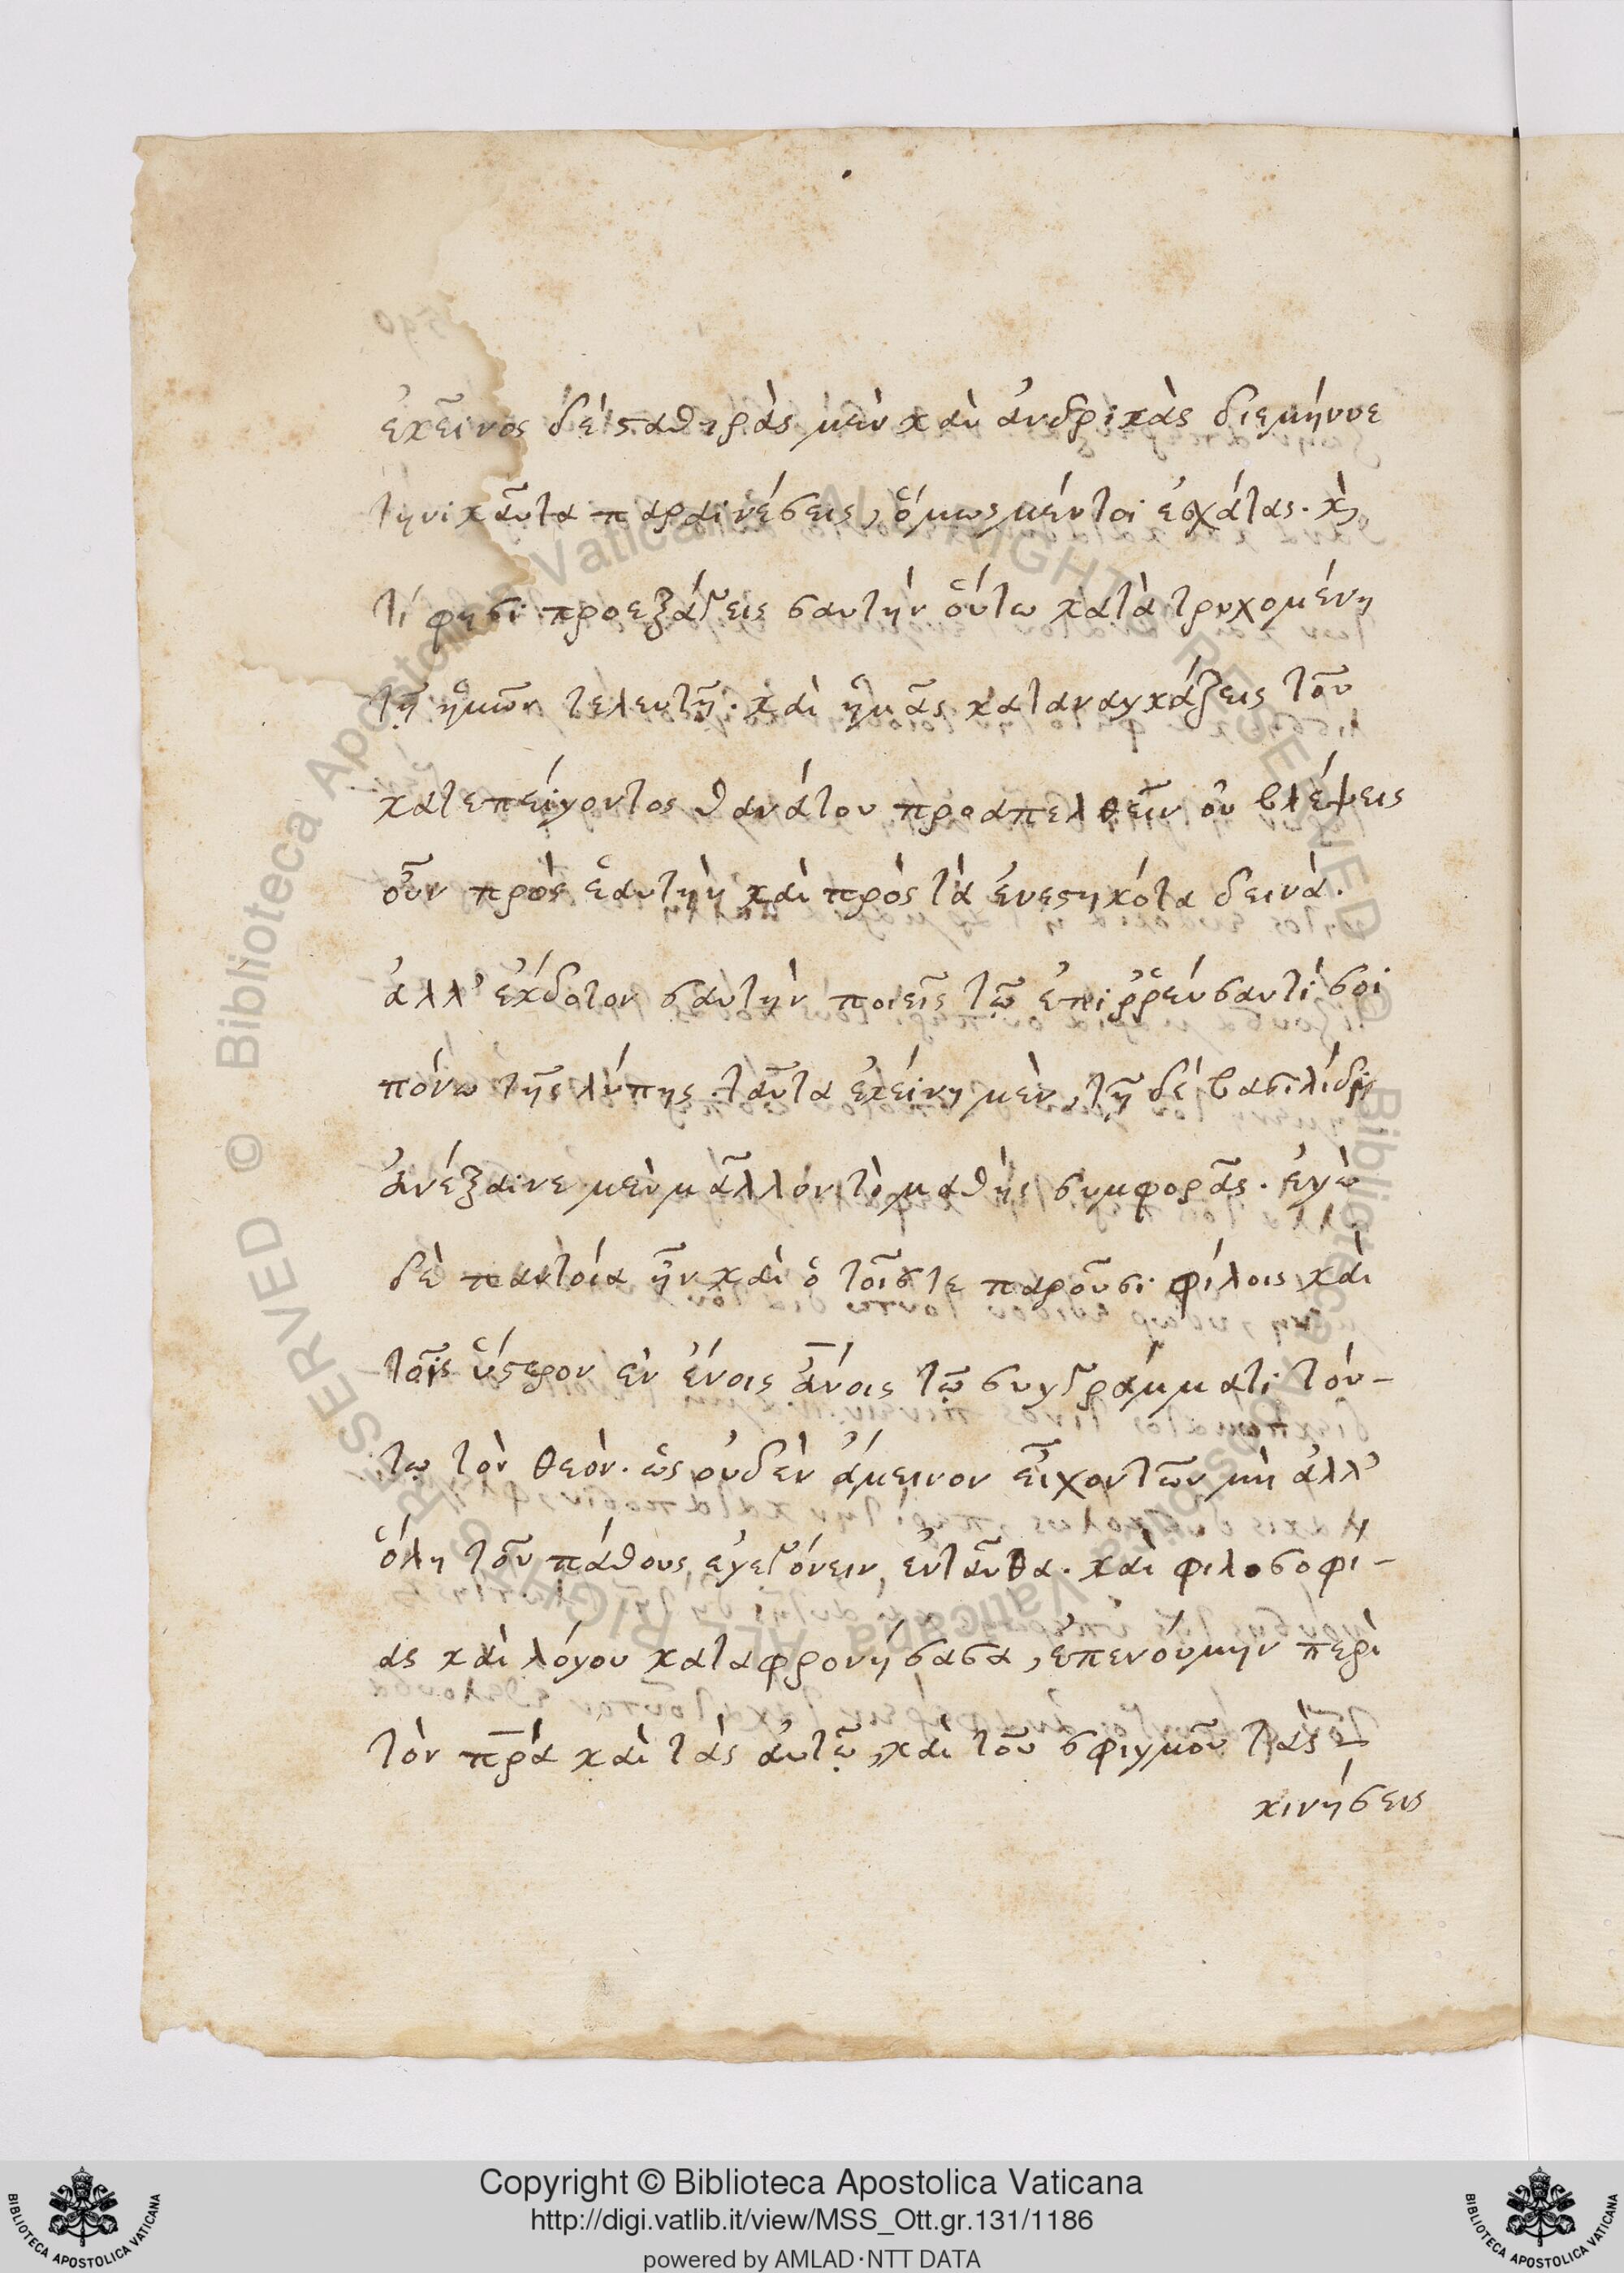 ἐκεῖνος δὲ σταθηρὰς μὲν καὶ ἀνδρικὰς διεμήνυε
τηνικαῦτα παραινέσεις, ὅμως μέντοι ἐσχάτας. κ̀,
τί φησι προεξάγεις σαυτὴν οὕτω κατὰτρυχομένη
τῇ ἡμῶν τελευτῇ. καὶ ἡμᾶς καταναγκάζεις τοῦ
κατεπείγοντος θανάτου προαπελθεῖν οὐ βλέψεις
οὖν πρὸς ἑαυτὴν καὶ πρὸς τὰ ἐνεστηκότα δεινά.
ἀλλ' ἔκδοτον σαυτὴν ποιεῖς τῷ ἐπιῤῥεύσαντί σοι
πόνω τῆς λύπης. ταῦτα ἐκείνη μὲν, τῇ δὲ βασιλίδι
ἀνέξαινε μὲν μᾶλλον τὸ μαθὴς συμφορᾶς. ἐγὼ
δὲ παντοία ἦν καὶ ὁ τοῖστε παροῦσι φίλοις καὶ
τοῖς ὕστερον ἐν ένοις ἀ̅νοις τῷ συγγράμματι τού-
τῳ τὸν θεὸν. ὡς οὐδὲν ἄμεινον εἶχον τῶν μὴ ἀλλ'
ὅλη τοῦ πάθους ἐγεγόνειν, ἐνταῦθα. καὶ φιλοσοφί-
ας καὶ λόγου καταφρονήσασα, ἐπενούμην περὶ
τὸν π̅ρ̅α καὶ τὰς αὐτῷ, καὶ τοῦ σφιγμοῦ τὰς
κινήσεις
Copyright © Biblioteca Apostolica Vaticana
http://digi.vatlib.it/view/MSS_Ott.gr.131/1186
powered by AMLAD·NTT DATA
BIBLIOTECA APOSTOLICA VATICANA
BIBLIOTECA APOSTOLICA VATICANA
© Biblioteca Apostolica Vaticana ALL RIGHTS RESERVED © Biblioteca Apostolica Vaticana ALL RIGHTS RESERVED